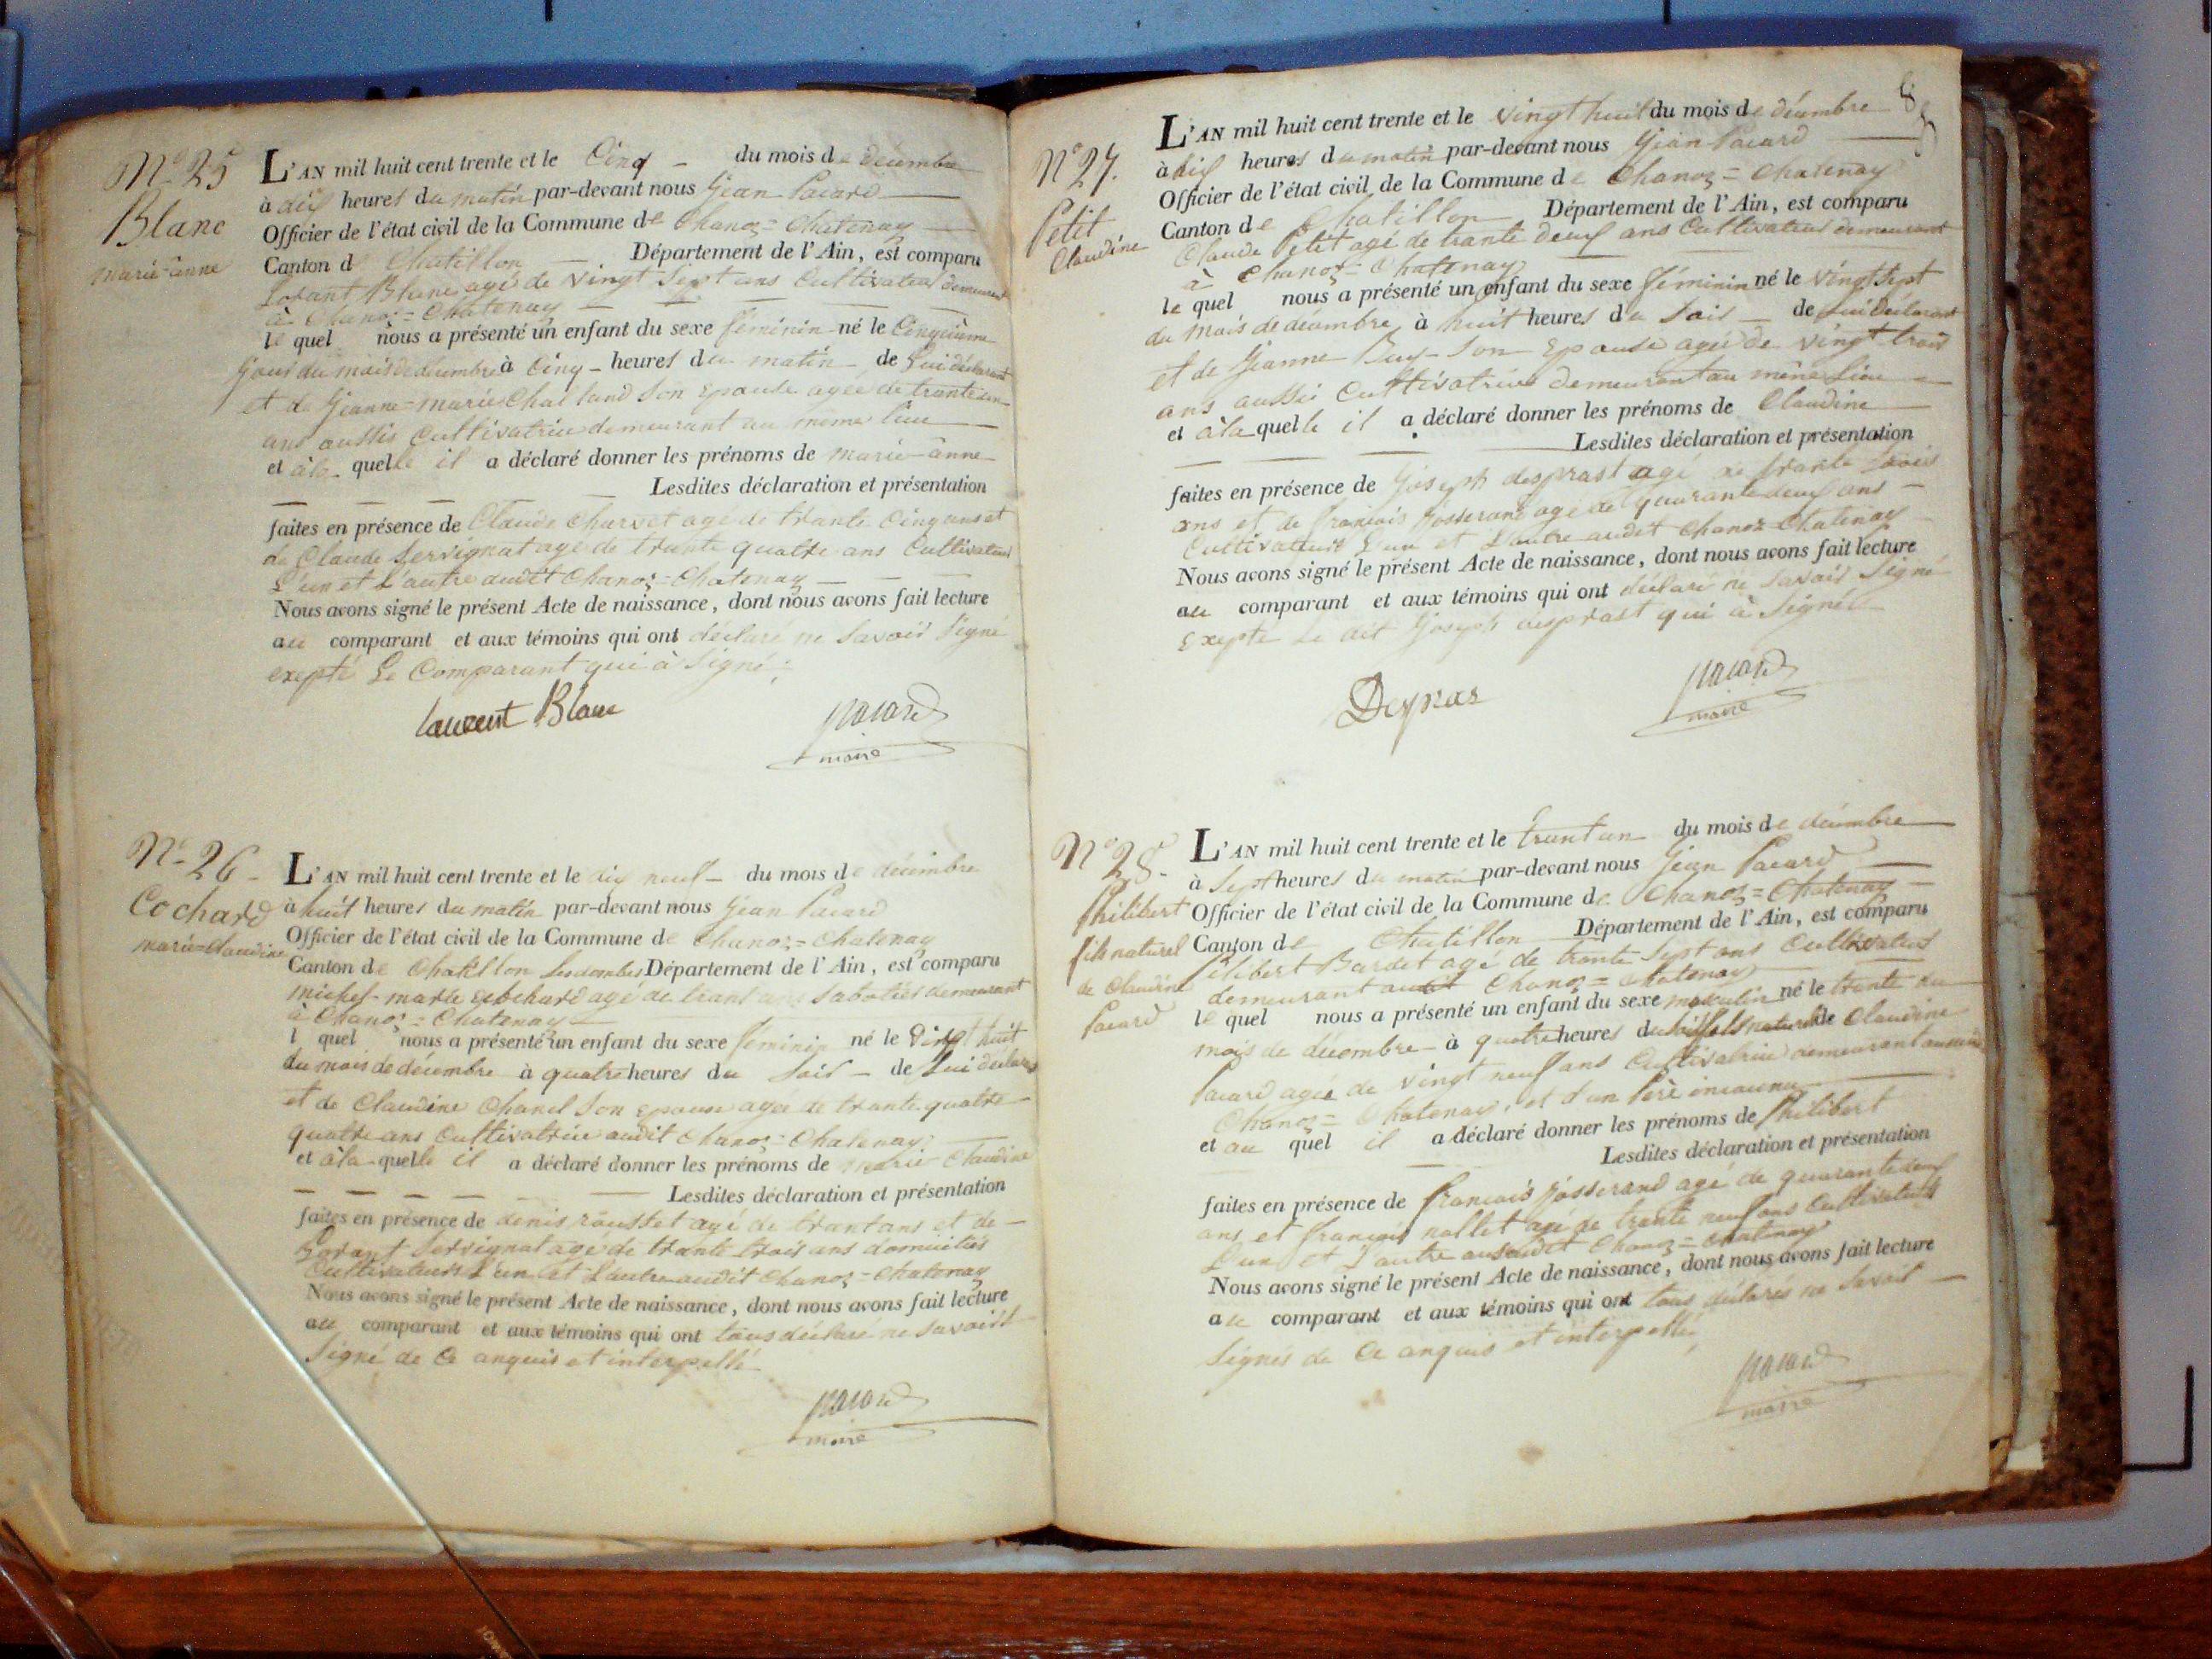 N° 25
Blanc
marie-anne
L'AN mil huit cent trente et le Cinq du mois de décembre
à dix heures du matin par-devant nous Jean Pacard
Officier de l'état civil de la Commune de Chanoz=Chatenay
Canton de Chatillon Département de l'Ain, est comparu
Lorant Blanc agé de vingt sept ans Cultivateur demeurant
à Chanoz=Chatenay
le quel nous a présenté un enfant du sexe féminin né le Cinquième
jour du mois de décembre à Cinq heures du matin de Lui déclarant
et de Jeanne=marie Chailland Son Epouse agée de trante un
ans aussis Cultivatrice demeurant au même lieu
et à la quelle il a déclaré donner les prénoms de marie-anne
Lesdites déclaration et présentation
faites en présence de Claude Charvet agé de trante Cinq ans et
de Claude Servignat agé de trante quatre ans Cultivateurs
L'un et L'autre audit Chanoz=Chatenay
Nous avons signé le présent Acte de naissance, dont nous avons fait lecture
au comparant et aux témoins qui ont déclaré ne Savoir Signé
exepté Le Comparant qui à Signé
laurent Blanc
pacard
maire
N° 26
Cochard
marie=claudine
L'AN mil huit cent trente et le dix neuf du mois de décembre
à huit heures du matin par-devant nous Jean Pacard
Officier de l'état civil de la Commune de Chanoz=Chatenay
Canton de Chatillon les dombes Département de l'Ain, est comparu
michel-marie Cochard agé de trant ans Sabotier demeurant
à Chanoz=Chatenay
l quel nous a présenté un enfant du sexe féminin né le Dixt huit
du mois de décembre à quatre heures du Soir de Lui déclarant
et de Claudine Chanel Son epouse agée de trante quatre
quatre ans Cultivatrice audit Chanoz=Chatenay
et à la quelle il a déclaré donner les prénoms de marie Claudine
Lesdites déclaration et présentation
faites en présence de denis roustet agé de trant ans et de
Lorant Servignat agé de trante trois ans domiciliés
Cultivateurs L'un et L'autre audit Chanoz=Chatenay
Nous avons signé le présent Acte de naissance, dont nous avons fait lecture
au comparant et aux témoins qui ont tous déclaré ne Savoir
Signé de Ce anquis et interpellé
pacard
maire
8
N° 27.
Petit
Claudine
L'AN mil huit cent trente et le vingt huit du mois de décembre
à dix heures du matin par-devant nous Jean Pacard
Officier de l'état civil de la Commune de Chanoz=Chatenay
Canton de Chatillon Département de l'Ain, est comparu
Claude Petit agé de trante deux ans Cultivateur demeurant
à Chanoz=Chatenay
le quel nous a présenté un enfant du sexe féminin né le vingt sept
du mois de décembre à huit heures du Soir de Lui déclarant
et de Jeanne Buy Son Epouse agée de vingt trois
ans aussi Cultivatrice demeurant au même Lieu
et à la quelle il a déclaré donner les prénoms de Claudine
Lesdites déclaration et présentation
faites en présence de Joseph desprast agé de trante trois
ans et de francois Josserand agé de quarante deux ans
Cultivateurs L'un et L'autre audit Chanoz=Chatenay
Nous avons signé le présent Acte de naissance, dont nous avons fait lecture
au comparant et aux témoins qui ont déclaré ne Savoir Signé
Exepté Le dit Joseph desprast qui à Signé
Depras
pacard
maire
N° 28.
Philibert
fils naturel
de Claudine
Pacard
L'AN mil huit cent trente et le trant un du mois de décembre
à Sept heures du matin par-devant nous Jean Pacard
Officier de l'état civil de la Commune de Chanoz=Chatenay
Canton de Chatillon Département de l'Ain, est comparu
Filibert Bardet agé de trante Sept ans Cultivateur
demeurant audit Chanoz=Chatenay
le quel nous a présenté un enfant du sexe masculin né le trante du
mois de décembre à quatre heures du Soir fils naturel de Claudine
Pacard agée de vingt neuf ans Cultivatrice demeurant
Chanoz=Chatenay, et d'un Père inconnu
et au quel il a déclaré donner les prénoms de Philibert
Lesdites déclaration et présentation
faites en présence de francois Josserand agé de quarante deux
ans et francois nallet agé de trante neuf ans Cultivateurs
L'un et L'autre Chanoz=Chatenay
Nous avons signé le présent Acte de naissance, dont nous avons fait lecture
au comparant et aux témoins qui ont tous déclarés ne Savoir
Signés de Ce anquis et interpellé
pacard
maire